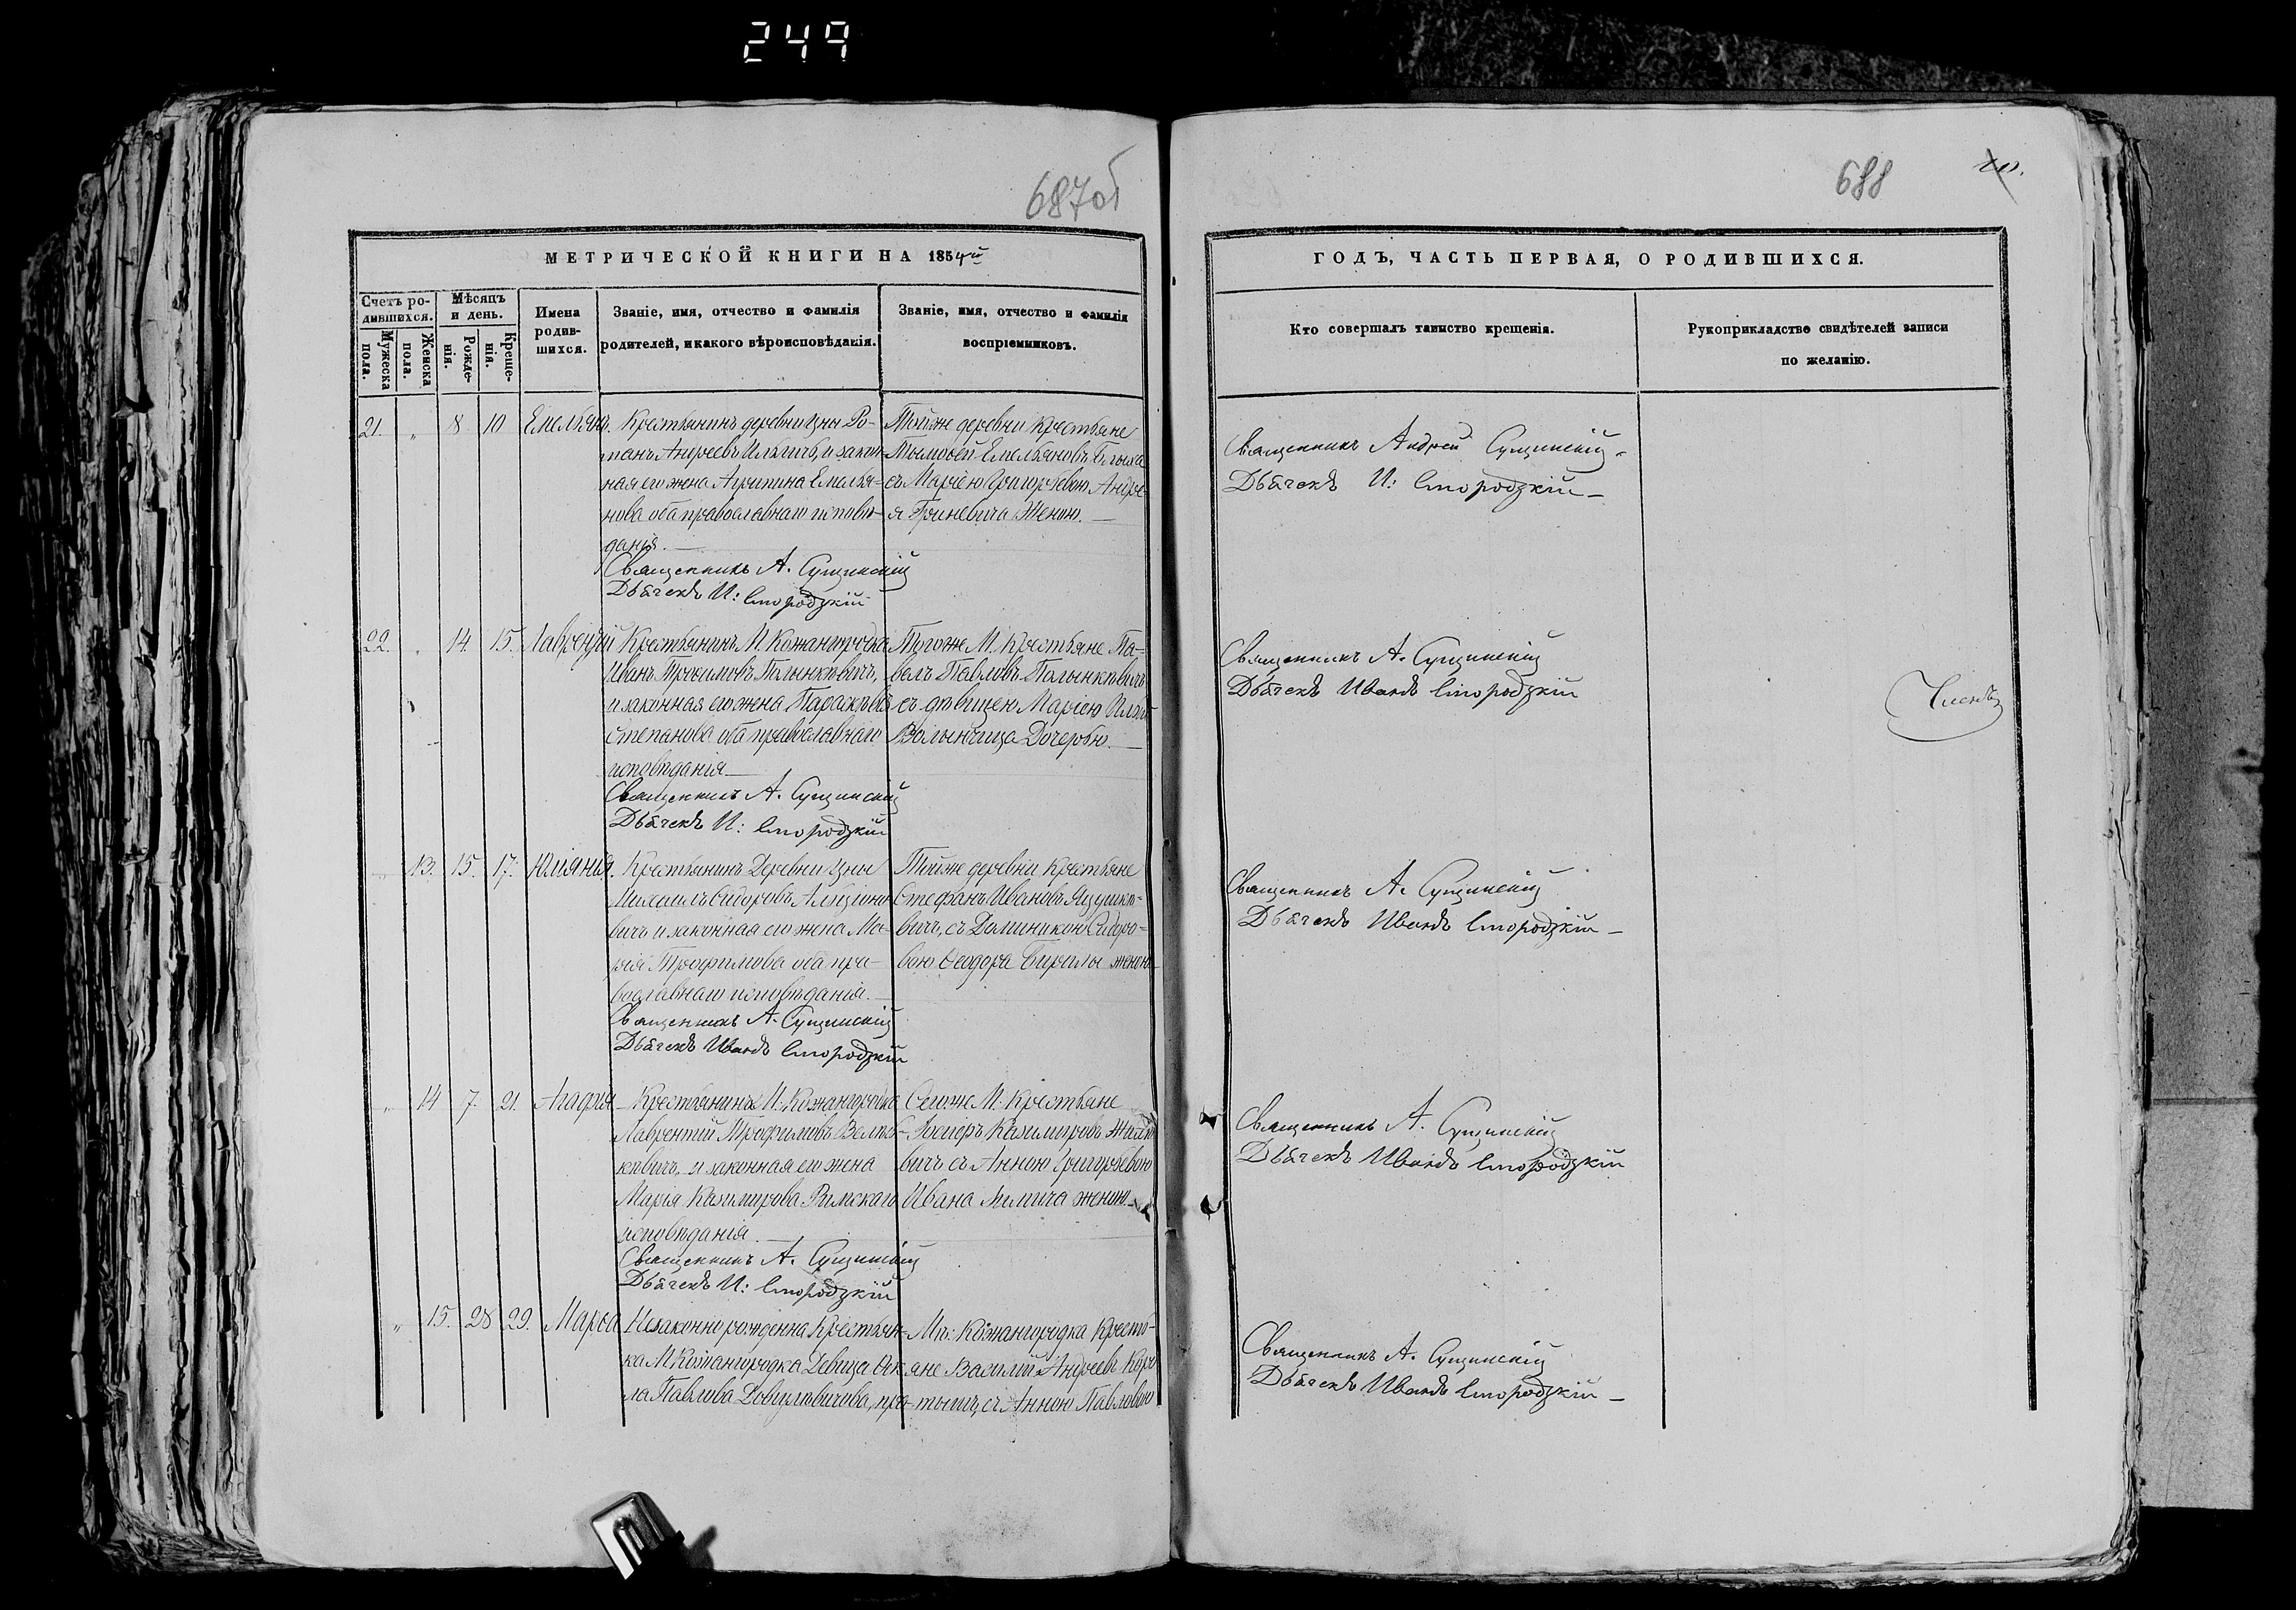 249
687об
688
МЕТРИЧЕСКОЙ КНИГИ НА 1854й
Счетъ ро-
дившихся.
Мужеска
пола.
Женска
пола.
Мѣсяцъ
и день.
Рожде-
нія.
Креще-
нія.
Имена
родив-
шихся.
Званіе, имя, отчество и фамилія
родителей, и какого вѣроисповѣданія.
Званіе, имя, отчество и фамилія
воспріемниковъ.
21. „ 8 10 Емельянъ.
Крестьянинъ деревни Цны Ро-
манъ Андреевъ Ильичъ, и закон-
ная его жена Агрипина Емелья-
нова оба православнаго исповѣ-
данія.
Священникъ А. Сущинскій
Дьячекъ И:
Тойже деревни Крестьяне
Емельяновъ
съ Маріею Григорьевою Андре-
я Гриневича Женою.
22. „ 14. 15. Лаврентій
Крестьянинъ М. Кожангородка
Иванъ Трофимовъ Полынкевичъ,
и законная его жена Параскева
Степанова оба православнаго
исповѣданія
Священникъ А. Сущинскій
Дьячекъ И:
Тогоже М. Крестьяне Па-
велъ Павловъ Полынкевичъ
съ дѣвицею Маріею
Волынчица Дочерью.
„ 13. 15. 17. Юліанія.
Крестьянинъ Деревни Цны
Михаилъ Сидоровъ
вичъ и законная его жена Ма-
рія Трофимова оба пра-
вославнаго исповѣданія.
Священникъ А. Сущинскій
Дьячекъ Иванъ
Тойже деревни Крестьяне
Стефанъ Ивановъ Ядушке-
вичъ, съ Доминикою Сидоро-
вою Ѳеодора Бирилы женою
„ 14 7. 21. Агафія
Крестьянинъ М. Кожангородка
Лаврентій Трофимовъ Велич-
кевичъ, и законная его жена
Марія Казимирова Римскаго
исповѣданія.
Священникъ А. Сущинскій
Дьячекъ И:
Сегоже М. Крестьяне
Іосифъ Казимировъ
вичъ съ Анною Григорьевою
Ивана женою.
„ 15. 28 29. Марѳа
Незаконно рожденна Крестьян-
ка М. Кожангородка Девица Ѳек-
ла Павлова
Мѣ: Кожангородка Кресть-
яне Василій Андреевъ
съ Анною Павловою
ГОДЪ, ЧАСТЬ ПЕРВАЯ, О РОДИВШИХСЯ.
Кто совершалъ таинство крещенія.
Рукоприкладство свидѣтелей записи
по желанію.
Священникъ Андрей Сущинскій
Дьячекъ И:
Священникъ А. Сущинскій
Дьячекъ Иванъ
Членъ
Священникъ А. Сущинскій
Дьячекъ Иванъ
Священникъ А. Сущинскій
Дьячекъ Иванъ
Священникъ А. Сущинскій
Дьячекъ Иванъ